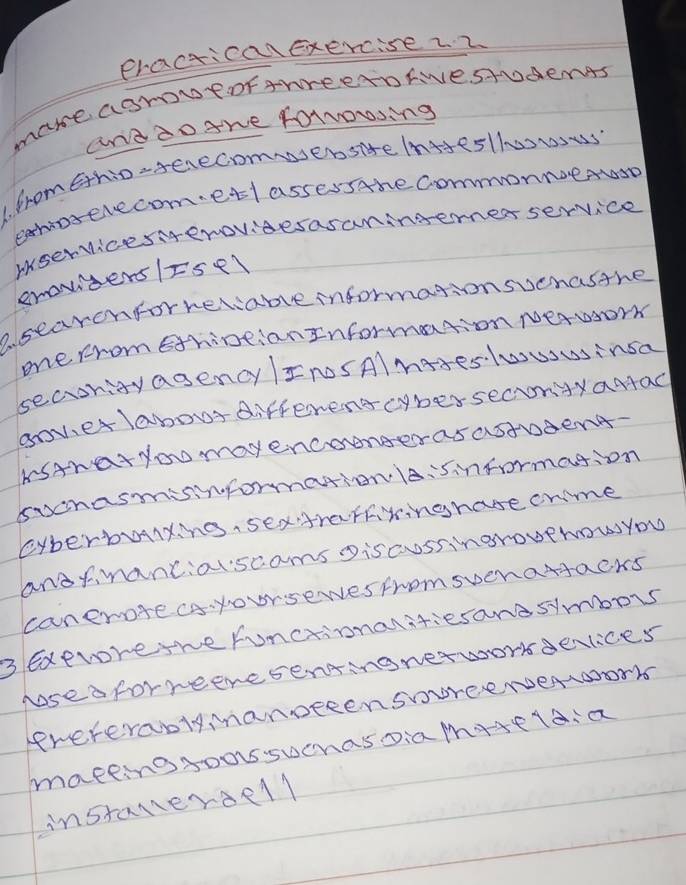 Practical Exercise 2.2
make a group of three to five students
and do the following
1. from Ethio-telecom website (https://www.
ethiotelecom.et) assess the common network
services it provides as an internet service
providers (ISP)
2. search for reliable information such as the
one from Ethiopian Information Network
security agency (INSA) https.(www.insa
gov.et) about different cyber security attac
ks that you may encounter as a student
such as misinformation, disinformation
cyberbullying, sex.traffiking hate crime
and financial scams Discuss in group how you
can protect yourselves from such attacks
3 Explore the functionalities and symbols
used for representing network devices
preferably in an open source network
mapping tools such as Dia (http://dia
installer.de/)